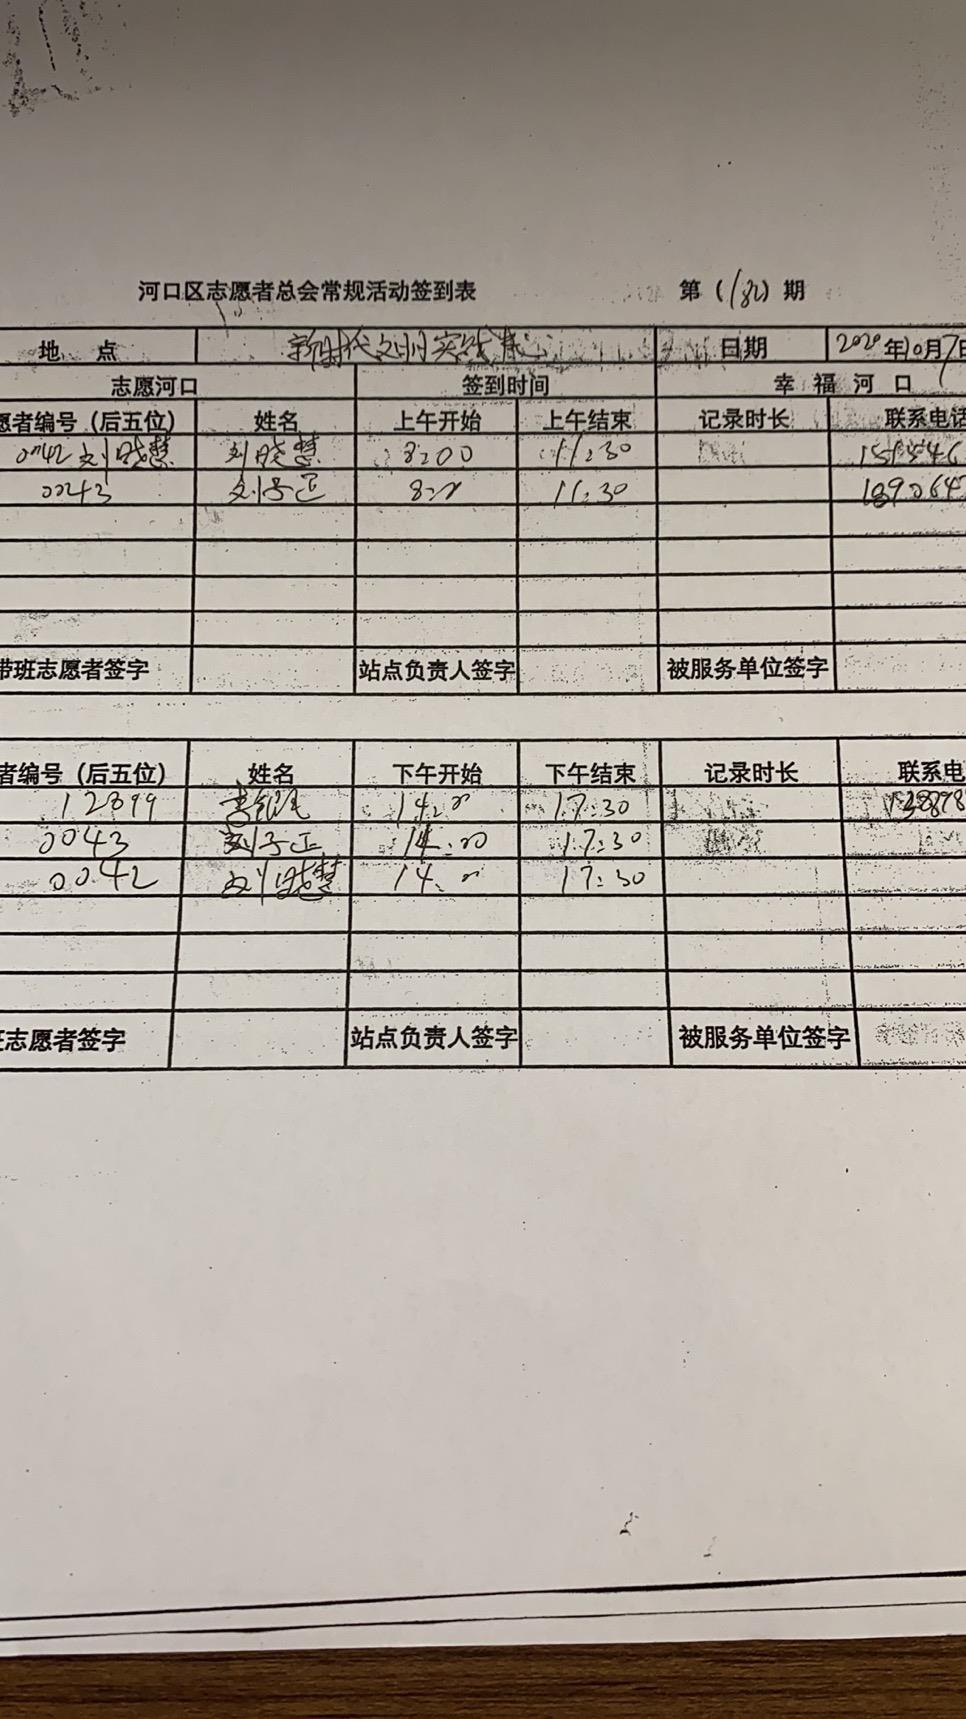 河口区志愿者总会常规活动签到表 第（ ）期
地 点 新时代文明实践中心 日期 2020年10月7日
志愿河口 签到时间 幸 福 河 口
愿者编号（后五位） 姓名 上午开始 上午结束 记录时长 联系电话
0042 刘晓慧 刘晓慧 8:00 11:30 151546
0043 刘子正 8:00 11:30 1890647
带班志愿者签字 站点负责人签字 被服务单位签字
者编号（后五位） 姓名 下午开始 下午结束 记录时长 联系电
12399 14:00 17:30
0043 刘子正 14:00 17:30
0042 刘晓慧 14:00 17:30
班志愿者签字 站点负责人签字 被服务单位签字